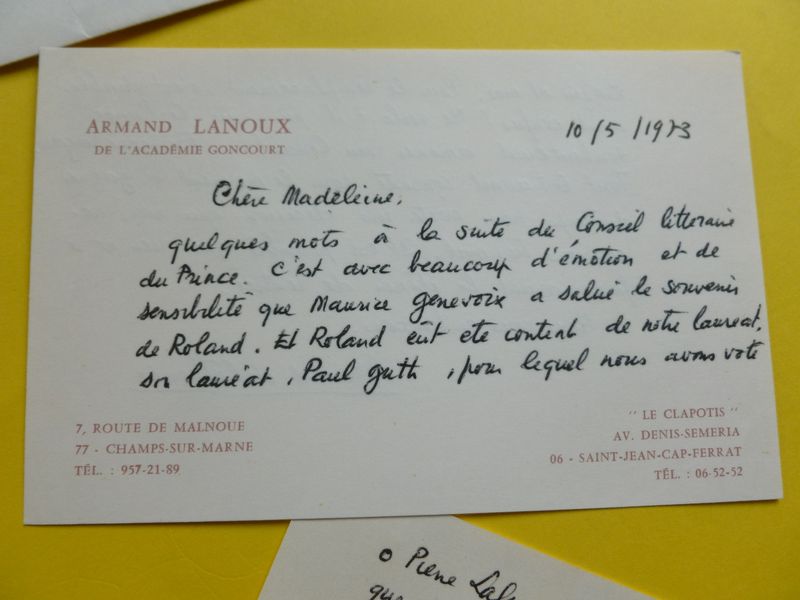 ARMAND LANOUX
DE L'ACADÉMIE GONCOURT
10/5/1973
Chère Madeleine,
quelques mots à la suite du Conseil litteraire
du Prince. C'est avec beaucoup d'émotion et de
sensibilité que Maurice Genevoix a salué le souvenir
de Roland. Et Roland eût ete content de notre laureat,
son lauréat, Paul Guth, pour lequel nous avons voté
7, ROUTE DE MALNOUE
77 - CHAMPS-SUR-MARNE
TÉL. : 957-21-89
" LE CLAPOTIS "
AV. DENIS-SEMERIA
06 - SAINT-JEAN-CAP-FERRAT
TÉL. : 06-52-52
o Pierre